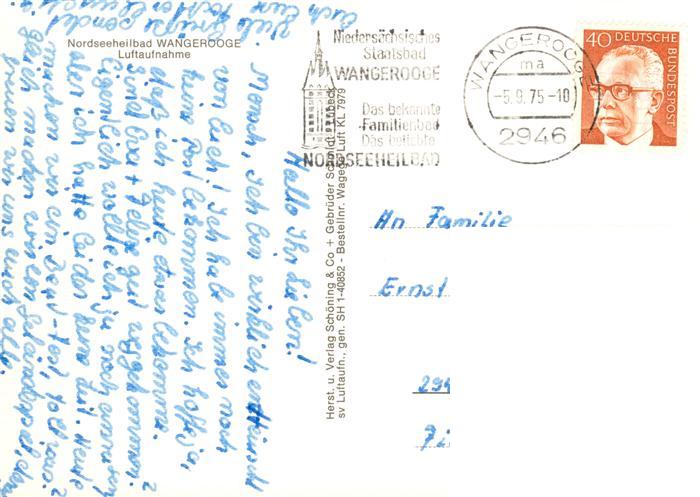 Nordseeheilbad WANGEROOGE
Luftaufnahme
Niedersächsisches
Staatsbad
WANGEROOGE
Das bekannte
Familienbad
Das beliebte
NORDSEEHEILBAD
WANGEROOGE
ma
-5.9.75-10
2946
40 DEUTSCHE
BUNDESPOST
An Familie
Ernst
Herst. u. Verlag Schöning & Co + Gebrüder Schmidt, Lübeck
sv Luftaufn., gen. SH 1-40852 - Bestellnr. Wagee Luft KL 7979
Hallo Ihr Lieben!
Mensch, ich bin wirklich enttäuscht
von Euch! Ich habe immer noch
keine Post bekommen. Ich hoffe ja,
daß ich heute etwas bekomme.
Sind Eva + Helge gut weggekommen?
Eigentlich wollte ich ja noch anrufen,
aber ich hatte leider keine Zeit. Heute
machen wir ein
gleich machen wir ein Geländespiel, denn
freuen wir uns auch alle.
Viele Grüße sendet
Euch